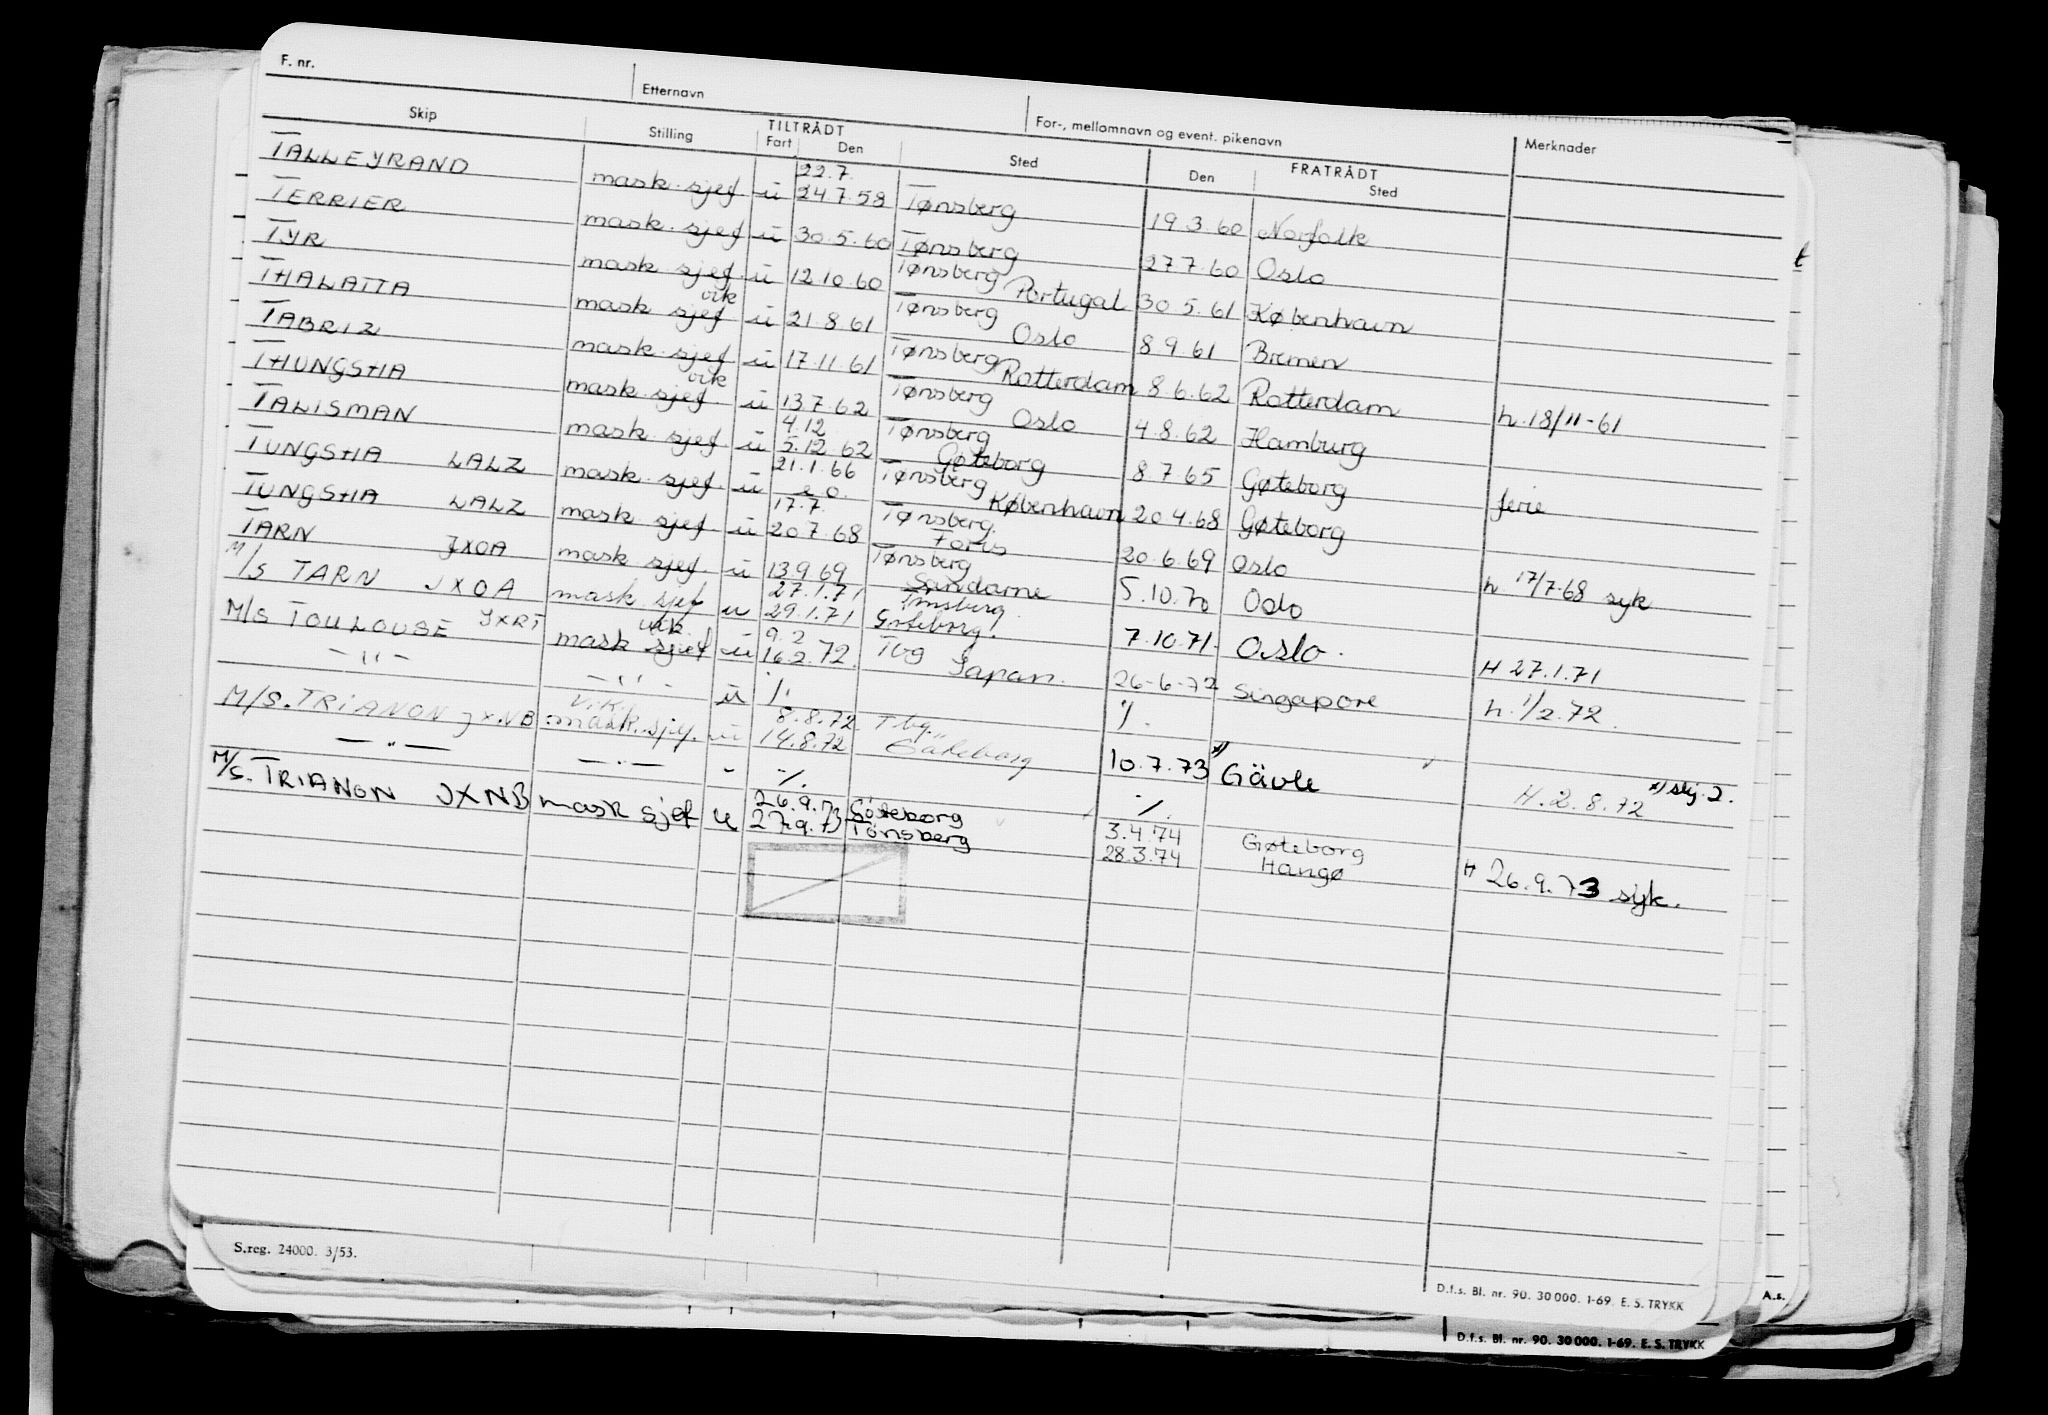 F. nr. Etternavn For-, mellomnavn og event. pikenavn
Skip Stilling TILTRÅDT Fart Den Sted FRATRÅDT Den Sted Merknader
TALLEYRAND mask. sjef u 22.7. 24.7.58 Tønsberg 19.3.60 Norfolk
TERRIER mask sjef u 30.5.60 Tønsberg 27.7.60 Oslo
TYR mask sjef u 12.10.60 Tønsberg Portugal 30.5.61 København
THALATTA mask sjef vik u 21.8.61 Tønsberg Oslo 8.9.61 Bremen
TABRIZ mask. sjef u 17.11.61 Tønsberg Rotterdam 8.6.62 Rotterdam h. 18/11-61
THUNGSHA mask sjef vik u 13.7.62 Tønsberg Oslo 4.8.62 Hamburg
TALISMAN mask. sjef u 4.12. 5.12.62 Tønsberg Gøteborg 8.7.65 Gøteborg ferie
TUNGSHA LALZ mask. sjef. u 21.1.66 e.o. Tønsberg København 20.4.68 Gøteborg
TUNGSHA LALZ mask sjef. u 17.7. 20.7.68 Tønsberg 20.6.69 Oslo h 17/7-68 syk
TARN JXOA mask sjef. u 13.9.69 Tønsberg Sandarne 5.10.70 Oslo
M/S TARN JXOA mask. sjef u 27.1.71 29.1.71 Tønsberg Gøteborg. 7.10.71. Oslo. H 27.1.71
M/S TOULOUSE JXRT mask sjef vik u 9.2 16.2.72. Tbg Japan. 26-6-72 Singapore h. 1/2.72.
-"- -"- u ·/. ·/.
M/S. TRIANON JX.NB mask. sjef. vik. u 8.8.72 14.8.72 Tbg. Gøteborg 10.7.73 x) Gävle H. 2.8.72 x) stj. 2.
-"- -"- - ·/. ·/.
M/S. TRIANON JXNB mask sjef u 26.9.73 27.9.73 Göteborg Tønsberg 3.4.74 28.3.74 Gøteborg Hangø H 26.9.73 syk.
S.reg. 24000. 3/53.
D.f.s. Bl. nr. 90. 30 000. 1-69. E. S. TRYKK
A.s.
D.f.s. Bl. nr. 90. 30 000. 1-69. E. S. TRYKK